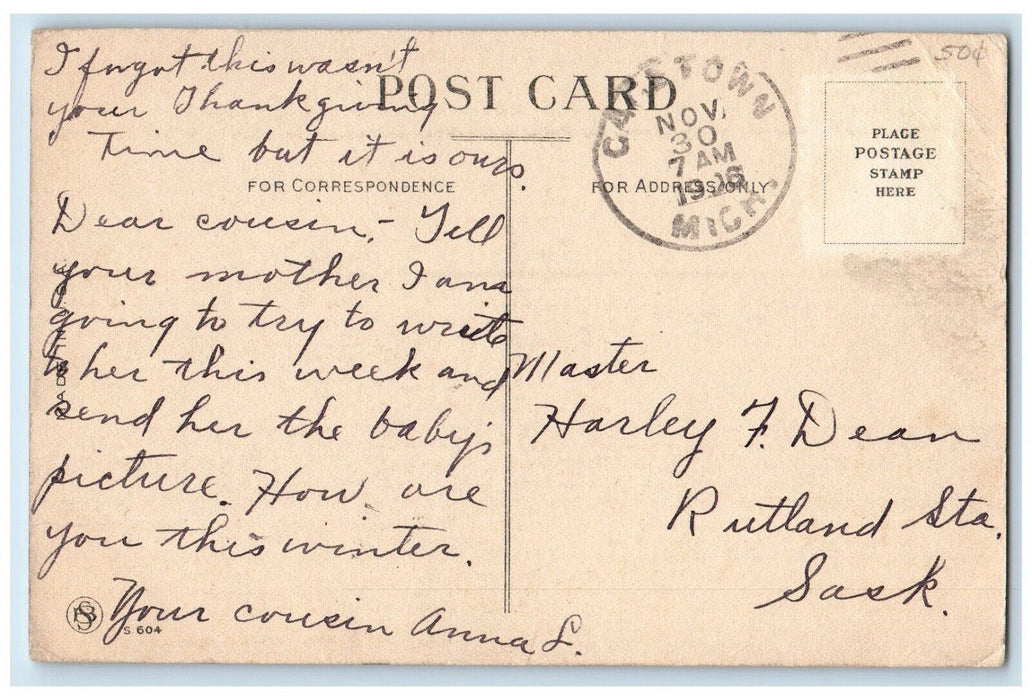 I forgot this wasn't
your Thankgiving
Time but it is ours.
POST CARD
FOR CORRESPONDENCE
Dear cousin,- Tell
your mother I am
going to try to write
to her this week and
send her the baby's
picture. How are
you this winter.
Your cousin Anna L.
S 604
TOWN
NOV.
30
7 AM
MICH.
50¢
PLACE
POSTAGE
STAMP
HERE
FOR ADDRESS ONLY
Master
Harley F. Dean
Rutland Sta.
Sask.